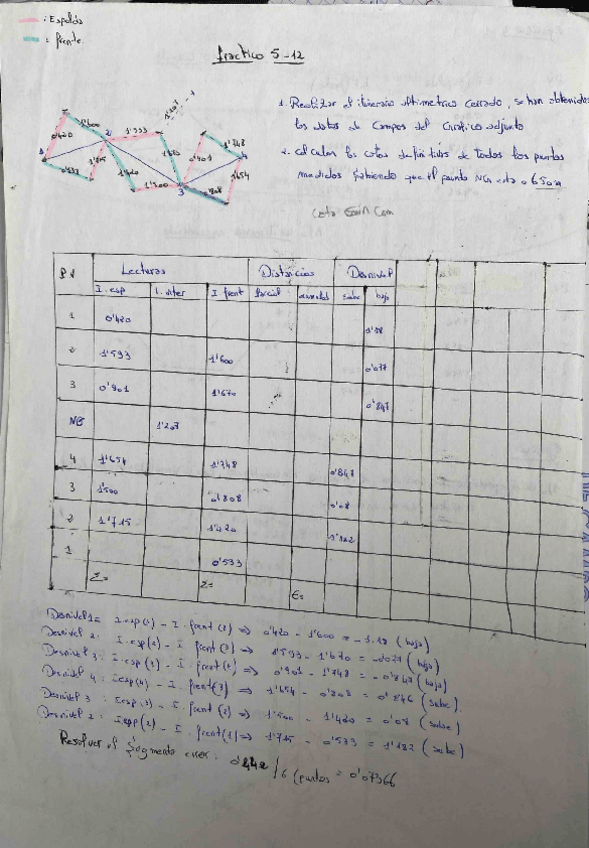 : Espalda
= frente.
Practico 5-12
1. Realizar el itinerario altimetrico cerrado, se han obtenidos
los datos de campos del Grafico adjunto
2. calcular las cotas definitivas de todos los puntos
medidos sabiendo que el punto NG esta a 650m
0'420
1'600
2
1'593
1
0'533
1'715
1'420
1'670
1'500
3
0'901
1'748
4
1'654
0'808
P.V Lecturas Distancias Desnivel
I. esp I. inter I. frent parcial sube baja
1 0'420 1'18
2 1'593 1'600 0'077
3 0'901 1'670 0'847
NG 1'207
4 1'654 1'748 0'847
3 1'500 0'808 0'08
2 1'715 1'420 1'182
1 0'533
Σ= Σ= E=
Desnivel 1= I.esp(1) - I. frent (2) => 0'420 - 1'600 = -1.18 (baja)
Desnivel 2: I. esp(2) - I. frent (3) => 1'593 - 1'670 = -0'077 (baja)
Desnivel 3: I. esp(3) - I. frent(4) => 0'901 - 1'748 = -0'847 (baja)
Desnivel 4: I.esp(4) - I. frent(3) => 1'654 - 0'808 = 0'846 (sube).
Desnivel 3: I.esp(3) - I. frent (2) => 1'500 - 1'420 = 0'08 (sube)
Desnivel 2: I.esp(2) - I. frent(1) => 1'715 - 0'533 = 1'182 (sube)
Resolver el error: /6 (puntos = 0'07366